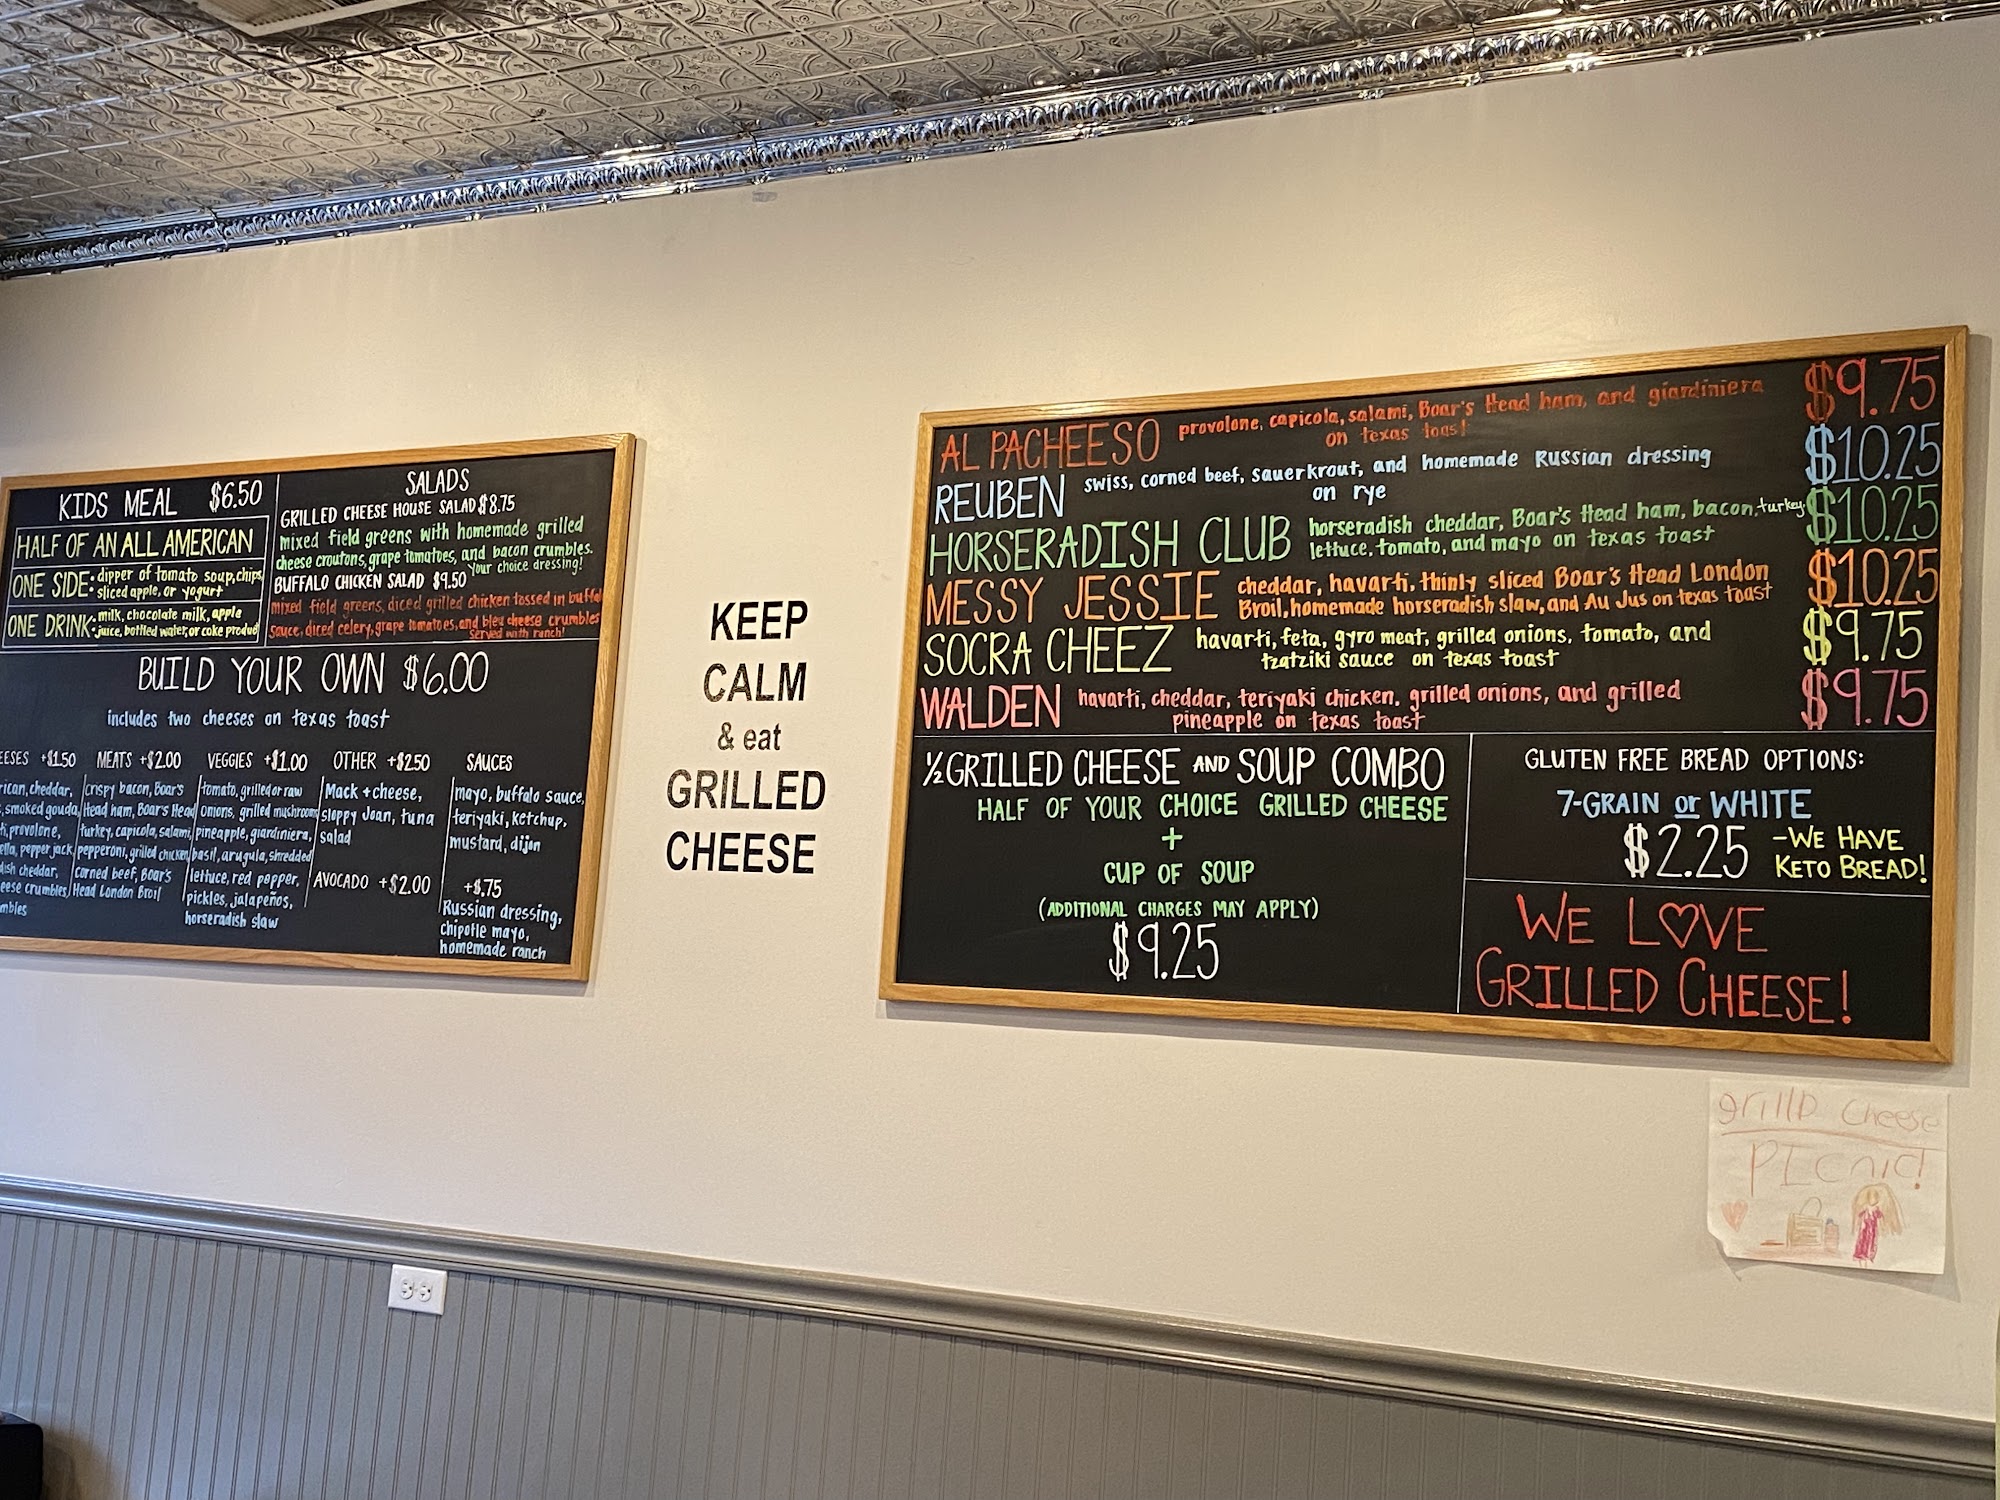 KIDS MEAL $6.50
HALF OF AN ALL AMERICAN
ONE SIDE: dipper of tomato soup, chips,
sliced apple, or yogurt
ONE DRINK: milk, chocolate milk, apple
juice, bottled water, or coke product
SALADS
GRILLED CHEESE HOUSE SALAD $8.75
mixed field greens with homemade grilled
cheese croutons, grape tomatoes, and bacon crumbles.
Your choice dressing!
BUFFALO CHICKEN SALAD $9.50
mixed field greens, diced grilled chicken tossed in buffalo
sauce, diced celery, grape tomatoes, and bleu cheese crumbles
Served with ranch!
BUILD YOUR OWN $6.00
includes two cheeses on texas toast
EESES +$1.50
rican, cheddar,
smoked gouda,
provolone,
ella, pepper jack,
dish cheddar,
eese crumbles,
mbles
MEATS +$2.00
crispy bacon, Boar's
Head ham, Boar's Head
turkey, capicola, salami,
pepperoni, grilled chicken,
corned beef, Boar's
Head London Broil
VEGGIES +$1.00
tomato, grilled or raw
onions, grilled mushrooms,
pineapple, giardiniera,
basil, arugula, shredded
lettuce, red pepper,
pickles, jalapeños,
horseradish slaw
OTHER +$2.50
Mack + cheese,
sloppy Joan, tuna
salad
AVOCADO +$2.00
SAUCES
mayo, buffalo sauce,
teriyaki, ketchup,
mustard, dijon
+$.75
Russian dressing,
chipotle mayo,
homemade ranch
KEEP
CALM
& eat
GRILLED
CHEESE
AL PACHEESO provolone, capicola, salami, Boar's Head ham, and giardiniera $9.75
on texas toast
REUBEN swiss, corned beef, sauerkraut, and homemade Russian dressing $10.25
on rye
HORSERADISH CLUB horseradish cheddar, Boar's Head ham, bacon, turkey, $10.25
lettuce, tomato, and mayo on texas toast
MESSY JESSIE cheddar, havarti, thinly sliced Boar's Head London $10.25
Broil, homemade horseradish slaw, and Au Jus on texas toast
SOCRA CHEEZ havarti, feta, gyro meat, grilled onions, tomato, and $9.75
tzatziki sauce on texas toast
WALDEN havarti, cheddar, teriyaki chicken, grilled onions, and grilled $9.75
pineapple on texas toast
½ GRILLED CHEESE AND SOUP COMBO
HALF OF YOUR CHOICE GRILLED CHEESE
+
CUP OF SOUP
(ADDITIONAL CHARGES MAY APPLY)
$9.25
GLUTEN FREE BREAD OPTIONS:
7-GRAIN or WHITE
$2.25 -WE HAVE
KETO BREAD!
WE LOVE
GRILLED CHEESE!
grillD cheese
PIcnic!